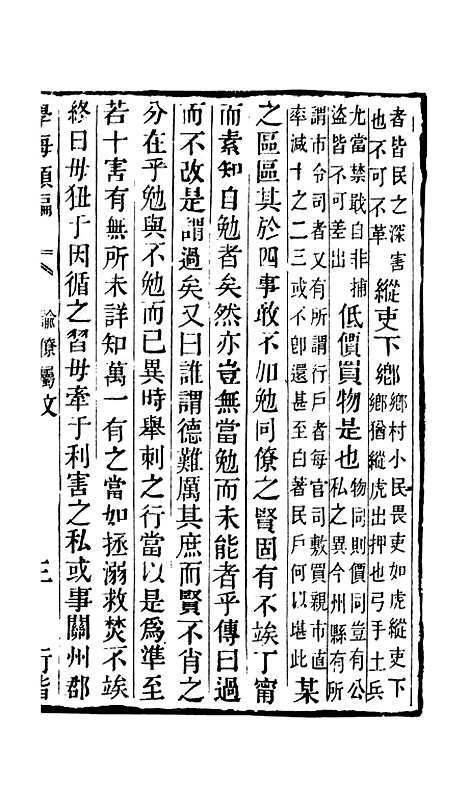 者皆民之深害也不可不革縱吏下鄉鄉村小民畏吏如虎縱吏下鄉猶縱虎出押也弓手土兵
尤當禁戢自非捕盜皆不可差出低價買物是也物同則價同豈有公私之異今州縣有所
謂市令司者又有所謂行戶者每官司敷買視市直率減十之二三或不卽還甚至白著民戶何以堪此某
之區區其於四事敢不加勉同僚之賢固有不竢丁甯
而素知自勉者矣然亦豈無當勉而未能者乎傳曰過
而不改是謂過矣又曰誰謂德難厲其庶而賢不肖之
分在乎勉與不勉而已異時舉刺之行當以是爲準至
若十害有無所未詳知萬一有之當如拯溺救焚不竢
終日毋狃于因循之習毋牽于利害之私或事關州郡
學海類編 諭僚屬文 三